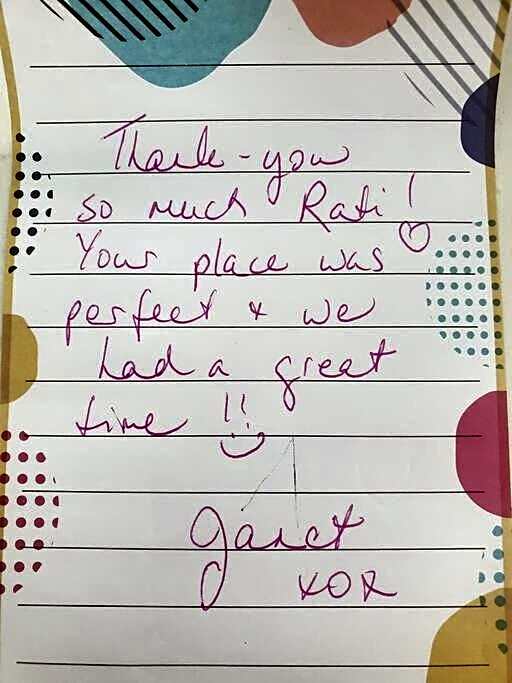 Thank-you
so much Rati!
Your place was ♡
perfect & we
had a great
time !!
Janet
xox